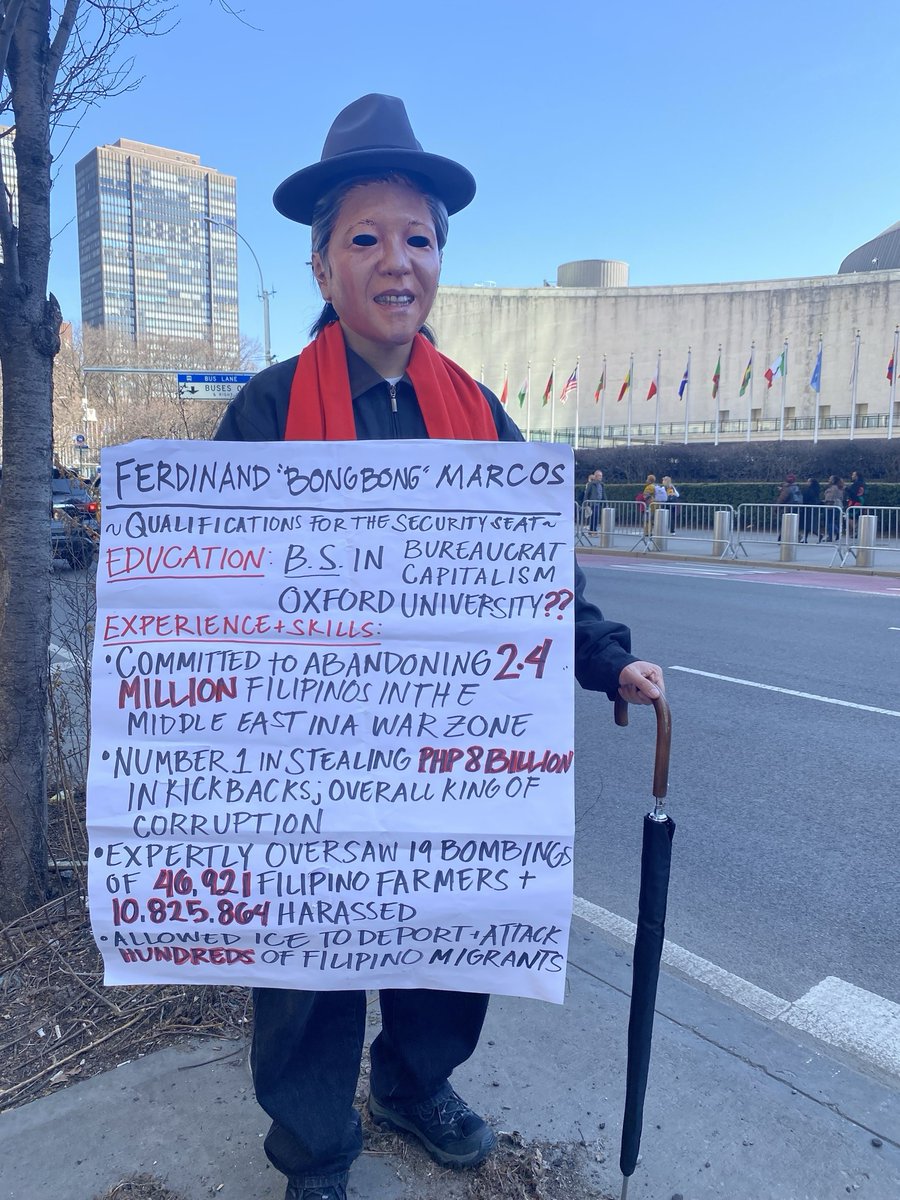 BUS LANE
BUSES O
FERDINAND "BONGBONG" MARCOS
~QUALIFICATIONS FOR THE SECURITY SEAT~
EDUCATION: B.S. IN BUREAUCRAT
CAPITALISM
OXFORD UNIVERSITY??
EXPERIENCE+SKILLS:
•COMMITTED TO ABANDONING 2.4
MILLION FILIPINOS IN THE
MIDDLE EAST IN A WAR ZONE
•NUMBER 1 IN STEALING PHP 8 BILLION
IN KICKBACKS; OVERALL KING OF
CORRUPTION
•EXPERTLY OVERSAW 19 BOMBINGS
OF 46,921 FILIPINO FARMERS +
10.825.864 HARASSED
•ALLOWED ICE TO DEPORT+ATTACK
HUNDREDS OF FILIPINO MIGRANTS